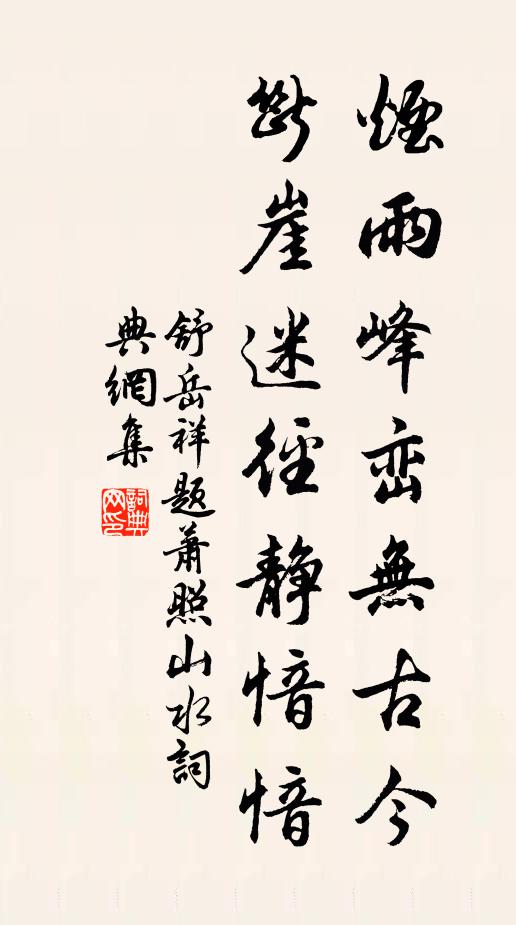 煙雨峰巒無古今
斷崖迷徑靜愔愔
舒岳祥題蕭照山水詞
典網集
詞典網印